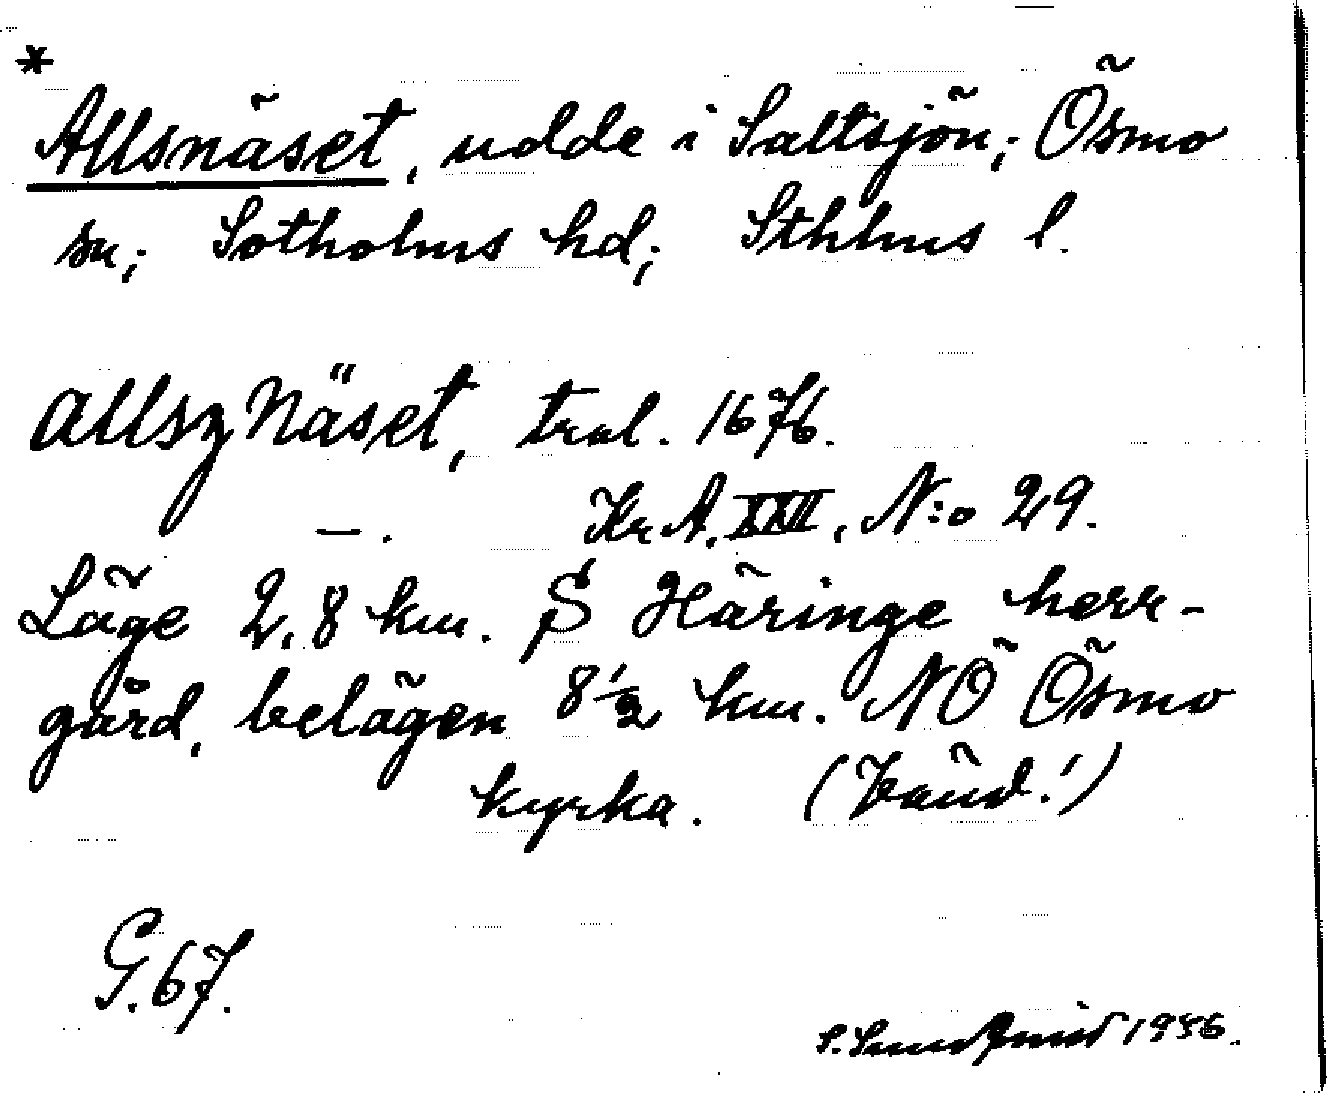 *
Allsnäset, udde i Saltsjön; Ösmo
sn; Sotholms hd; Sthlms l.
allsz Näset, tral. 1676.
—. Kr A. XXII, N:o 29.
Läge 2,8 km. S Häringe herr-
gård, belägen 8½ km. NÖ Ösmo
kyrka.
G. 67.
1956.